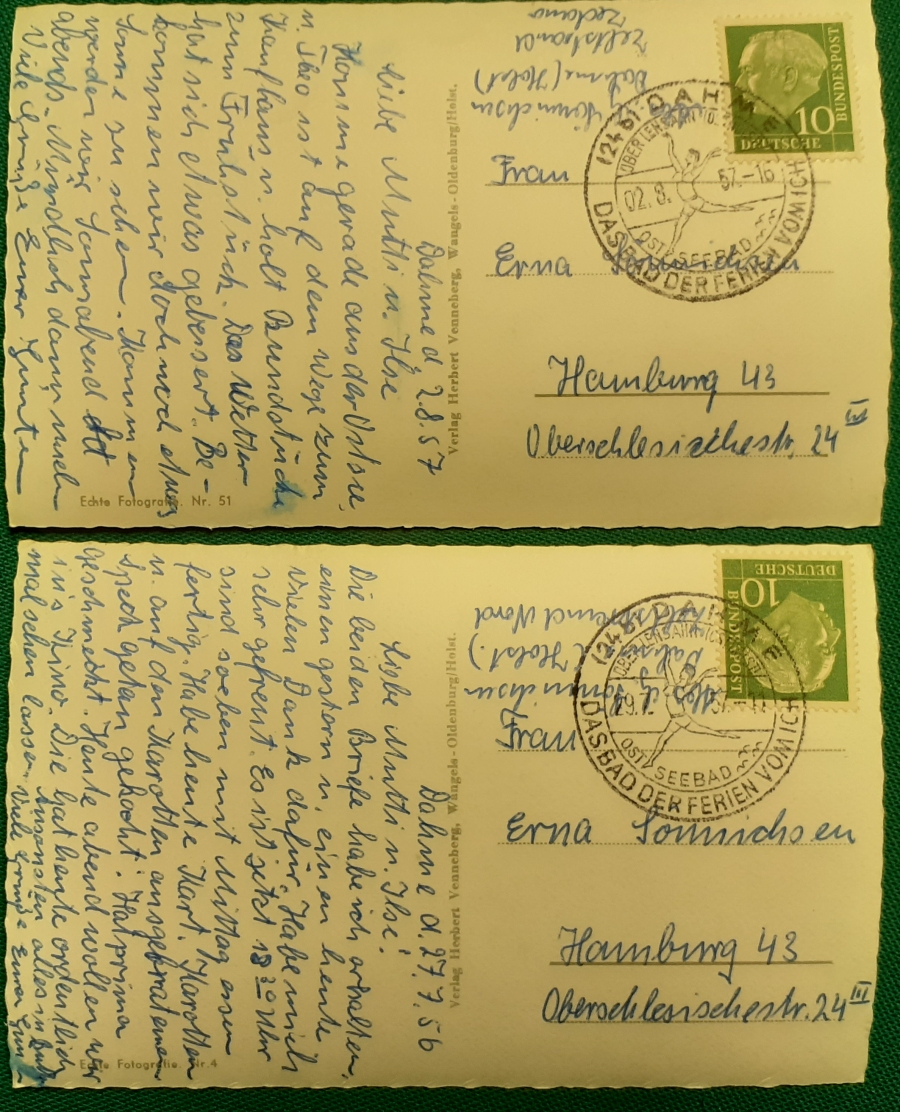 Dahme d 2.8.57
Liebe Mutti u. Ilse
Komme gerade aus der Ostsee,
u. Ibo ist auf dem Wege zum
Kaufhaus u. holt Rundstücke
zum Frühstück. Das Wetter
hat sich etwas gebessert. Be-
kommen wir doch noch etwas
Sonne zu sehen. Kommen
werden wir Sonnabend
abends. Mündlich dann mehr
Viele Grüße Euer Günter
Echte Fotografie. Nr. 51
Verlag Herbert Venneberg, Wangels-Oldenburg/Holst.
Sönnichsen
Dahme (Holst)
Zeltstrand
DEUTSCHE
BUNDESPOST
10
(24b) DAHME
OBER LENSAHN
02.8. 57.-16
OSTSEEBAD
DAS BAD DER FERIEN VOM ICH
Frau
Erna Sönnichsen
Hamburg 43
Oberschlesischestr. 24 III
Dahme d. 27.7.56
Liebe Mutti u. Ilse!
Die beiden Briefe habe ich erhalten,
einen gestern u. einen heute
Vielen Dank dafür. Habe mich
sehr gefreut. Es ist jetzt 13 30 Uhr
sind soeben mit Mittag essen
fertig. Habe heute Kart. Karotten
u. auf den Karotten ausgebratenen
Speck getan gekocht. Hat prima
geschmeckt. Heute abend wollen wir
in's Kino. Die hat heute ordentlich
mal schen lassen. Ansonsten alles in
Viele Grüße Euer Günter
Echte Fotografie. Nr. 4
Verlag Herbert Venneberg, Wangels-Oldenburg/Holst.
Sönnichsen
Dahme Holst.)
Zeltstrand Nord
DEUTSCHE
BUNDESPOST
10
(24b) DAHME
OBER LENSAHN
29.7.
OSTSEEBAD
DAS BAD DER FERIEN VOM ICH
Frau
Erna Sönnichsen
Hamburg 43
Oberschlesischestr. 24 III